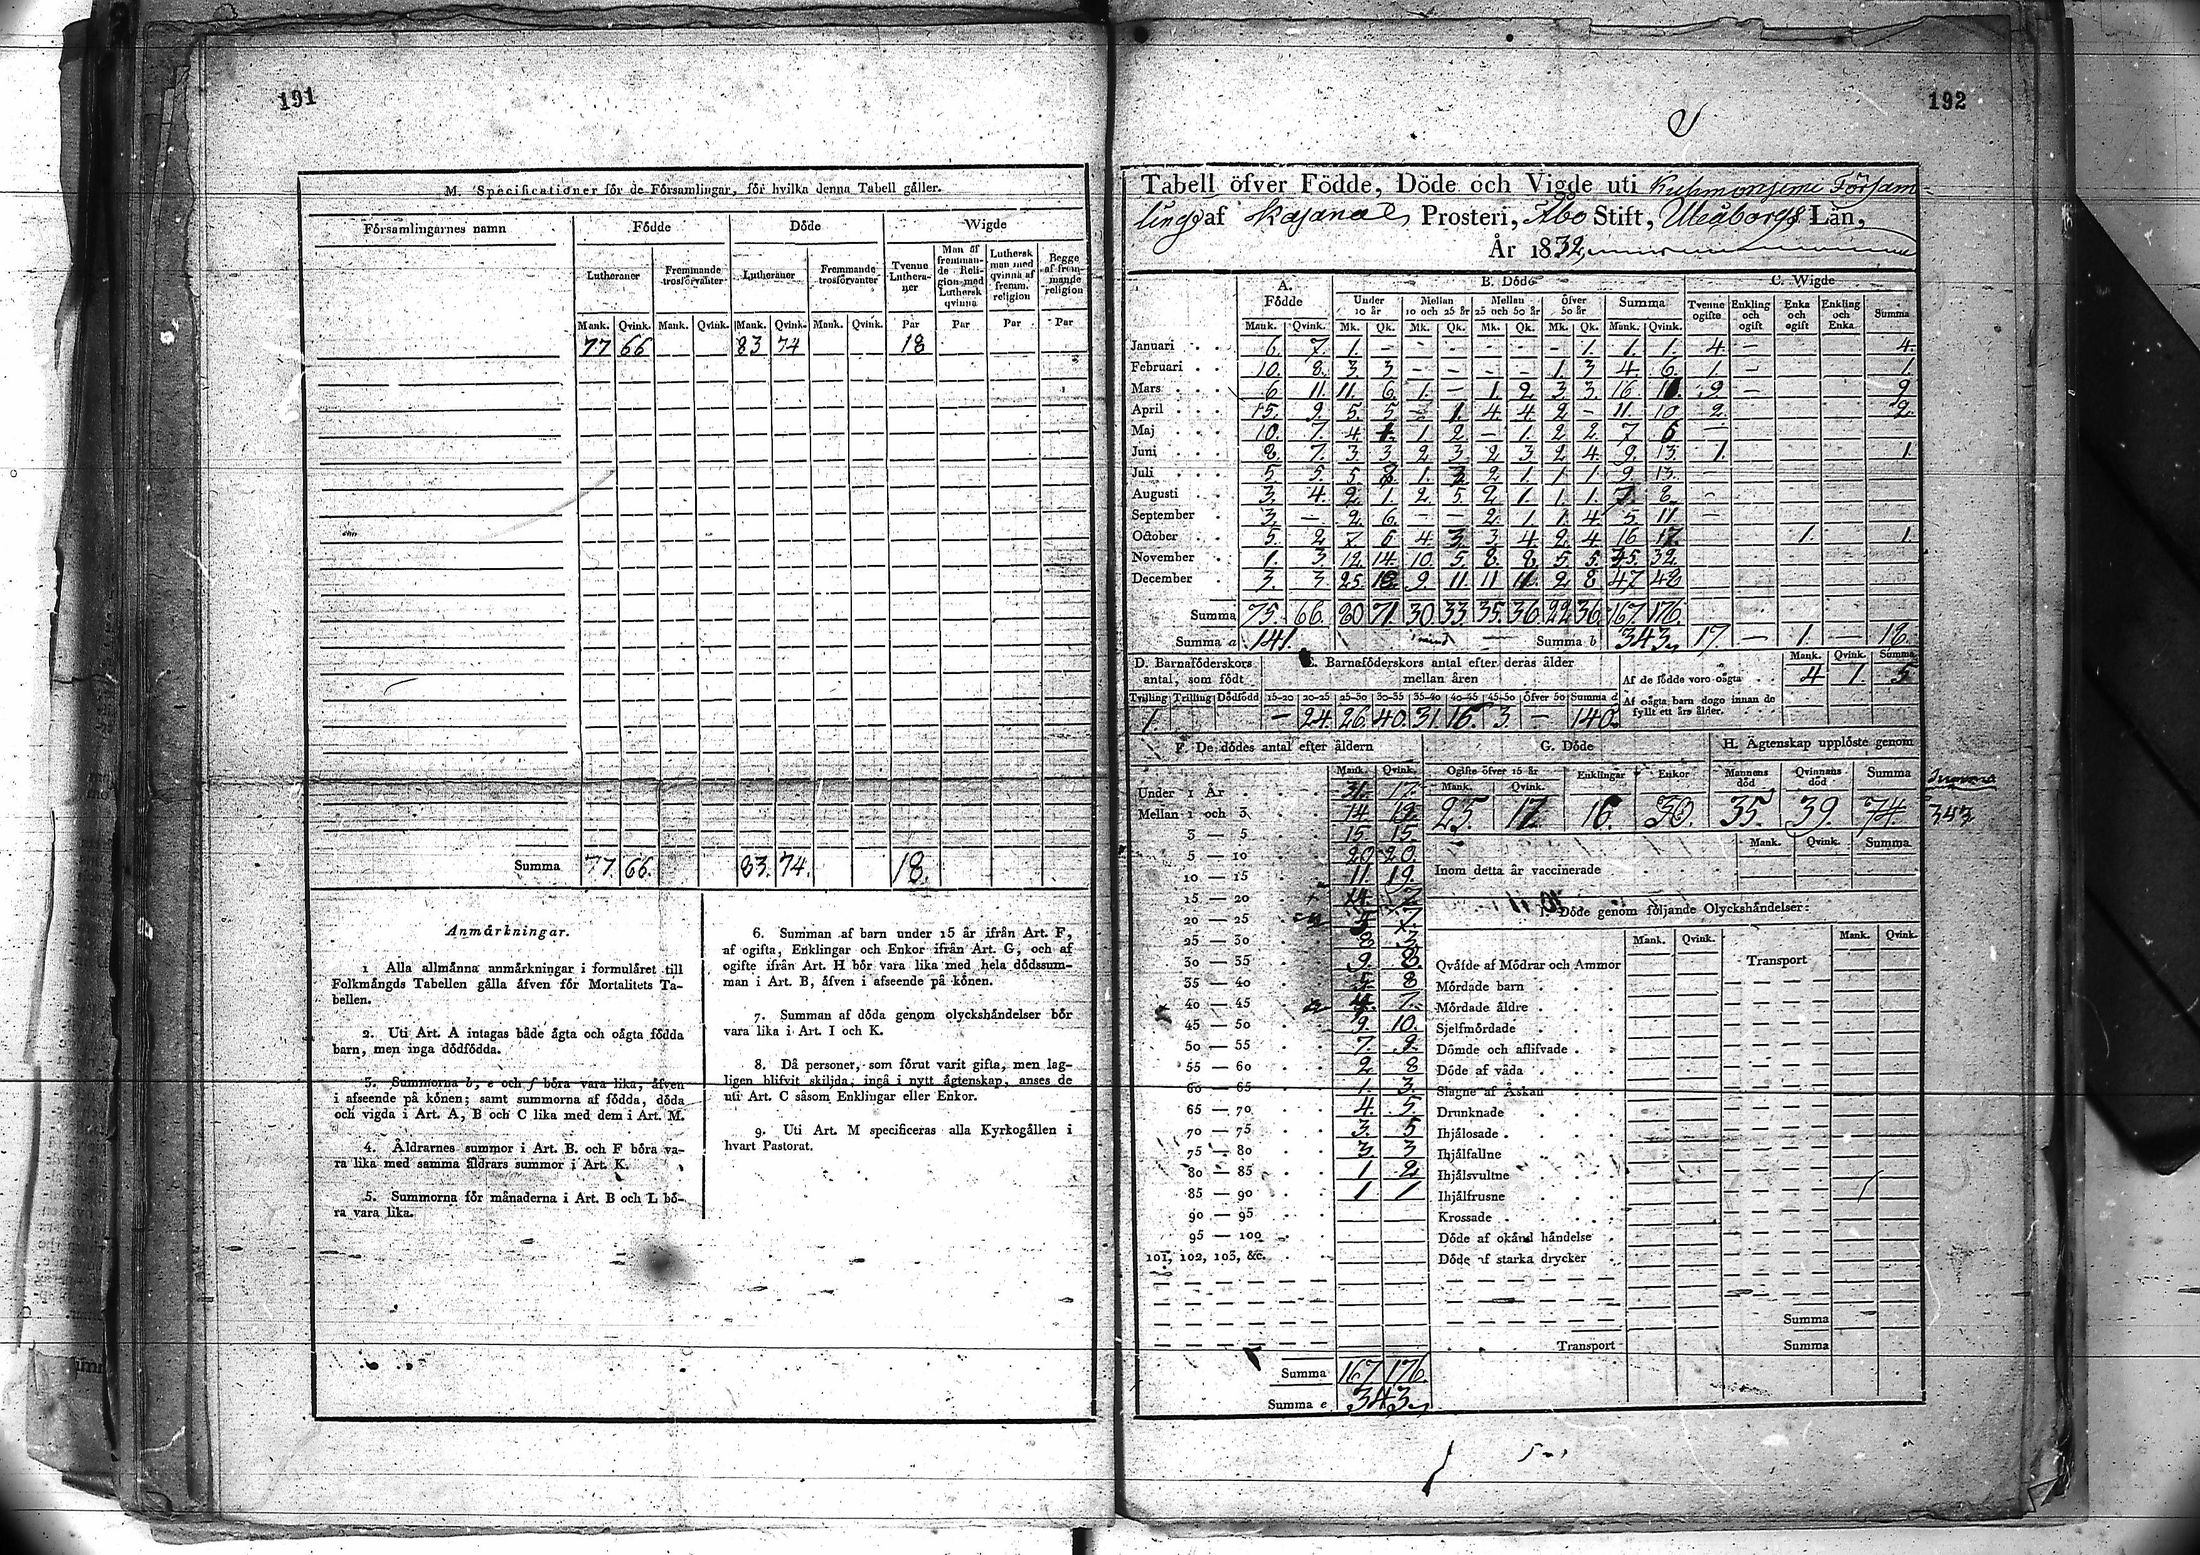 191
M. Specificationer för de Församlingar, för hvilka denna Tabell gäller.
Församlingarnes namn Födde Döde Wigde
Lutheraner Fremmande trosförvanter Lutheraner Fremmande trosförvanter Tvenne Lutheraner Man af fremmande Religion med Luthersk qvinna Luthersk man med qvinna af fremm. religion Begge af fremmande religion
Mank. Qvink. Mank. Qvink. Mank. Qvink. Mank. Qvink. Par Par Par Par
77 66 83 74 18
Summa 77. 66. 83. 74. 18.
Anmärkningar.
1 Alla allmänna anmärkningar i formuläret till
Folkmängds Tabellen gälla äfven för Mortalitets Ta-
bellen.
2. Uti Art. A intagas både ägta och oägta födda
barn, men inga dödfödda.
3. Summorna b, e och f böra vara lika, äfven
i afseende på könen; samt summorna af födda, döda
och vigda i Art. A, B och C lika med dem i Art. M.
4. Äldrarnes summor i Art. B. och F böra va-
ra lika med samma äldrars summor i Art. K.
5. Summorna för månaderna i Art. B och L bö-
ra vara lika.
6. Summan af barn under 15 år ifrån Art. F,
af ogifta, Enklingar och Enkor ifrån Art. G, och af
ogifte ifrån Art. H bör vara lika med hela dödssum-
man i Art. B, äfven i afseende på könen.
7. Summan af döda genom olyckshändelser bör
vara lika i Art. I och K.
8. Då personer, som förut varit gifta, men lag-
ligen blifvit skiljda, ingå i nytt ägtenskap, anses de
uti Art. C såsom Enklingar eller Enkor.
9. Uti Art. M specificeras alla Kyrkogällen i
hvart Pastorat.
192
Tabell öfver Födde, Döde och Vigde uti Kuhmoniemi Försam-
lings af Kajana Prosteri, Åbo Stift, Uleåborgs Län,
År 1832,
A. Födde B. Döde C. Wigde
Under 10 år Mellan 10 och 25 år Mellan 25 och 50 år Öfver 50 år Summa Tvenne ogifte Enkling och ogift Enka och ogift Enkling och Enka Summa
Mank. Qvink. Mk. Qk. Mk. Qk. Mk. Qk. Mk. Qk. Mank. Qvink.
Januari 6. 7. 1. - - - - - - 1. 1. 1. 4. - 4.
Februari 10. 8. 3 3 - - - - 1. 3 4. 6. 1. - 1.
Mars 6 11. 11. 6. 1. - 1. 2 3 3. 16 9. - 9.
April 15. 9. 5. 5 - 1. 4 4 2 - 11 10 2. 2.
Maj 10. 7 4 1. 1 2 - 1. 2 2. 7 6 -
Juni 8. 7. 3. 3 2 3. 2 3 2 4. 9. 13. 1. 1.
Juli 5 5. 5 1. 2 1. 1 1 9 13. -
Augusti 3. 4. 2 1. 2 5. 2 1 1. 1. 7. 8. -
September 3. - 2 6. - - 2. 1 1. 4. 5 11 -
October 5. 2 7 6 4. 3 3 4 2 4 16 17. 1. 1.
November 1. 3 12. 14. 10. 5 8. 8 5 5. 35. 32.
December 3. 3 25 18 9 11 11 11. 2 8 47 48
Summa 75. 66. 80 71. 30. 33. 35. 36. 22 36. 167. 176.
Summa a 141. Summa b 343. 17. - 1. - 18.
D. Barnaföderskors antal, som födt E. Barnaföderskors antal efter deras ålder mellan åren
Mank. Qvink. Summa
Af de födde voro oägta 4 1. 5
Af oägta barn dogo innan de fyllt ett års ålder.
Tvilling Trilling Dödfödd 15-20 20-25 25-30 30-35 35-40 40-45 45-50 Öfver 50 Summa d
1. - 24. 26. 40. 31. 16. 3. - 140.
F. De dödes antal efter åldern
Mank. Qvink.
Under 1 År 31. 17.
Mellan 1 och 3 14 19.
3 — 5 15 15.
5 — 10 20 20.
10 — 15 11 19.
15 — 20 14 7
20 — 25 5 7.
25 — 30 8 3.
30 — 35 9. 8.
35 — 40 5. 8
40 — 45 7.
45 — 50 9. 10.
50 — 55 7. 9.
55 — 60 2 8
60 — 65 1. 3.
65 — 70 4. 5.
70 — 75 3. 5
75 — 80 3 3
80 — 85 1 2
85 — 90 1 1
90 — 95
95 — 100
101, 102, 103, &c.
Summa 167 176.
Summa e 343.
G. Döde
Ogifte öfver 15 år Enklingar Enkor
Mank. Qvink.
25. 17. 16. 30.
H. Ägtenskap upplöste genom
Mannens död Qvinnans död Summa
35. 39. 74
Summa
343
Mank. Qvink. Summa
Inom detta år vaccinerade
I. Döde genom följande Olyckshändelser:
Mank. Qvink. Mank. Qvink.
Qväfde af Mödrar och Ammor Transport
Mördade barn
Mördade äldre
Sjelfmördade
Dömde och aflifvade
Döde af våda
Slagne af Åskan
Drunknade
Ihjälosade
Ihjälfallne
Ihjälsvultne
Ihjälfrusne
Krossade
Döde af okänd händelse
Döde af starka drycker
Summa
Transport Summa